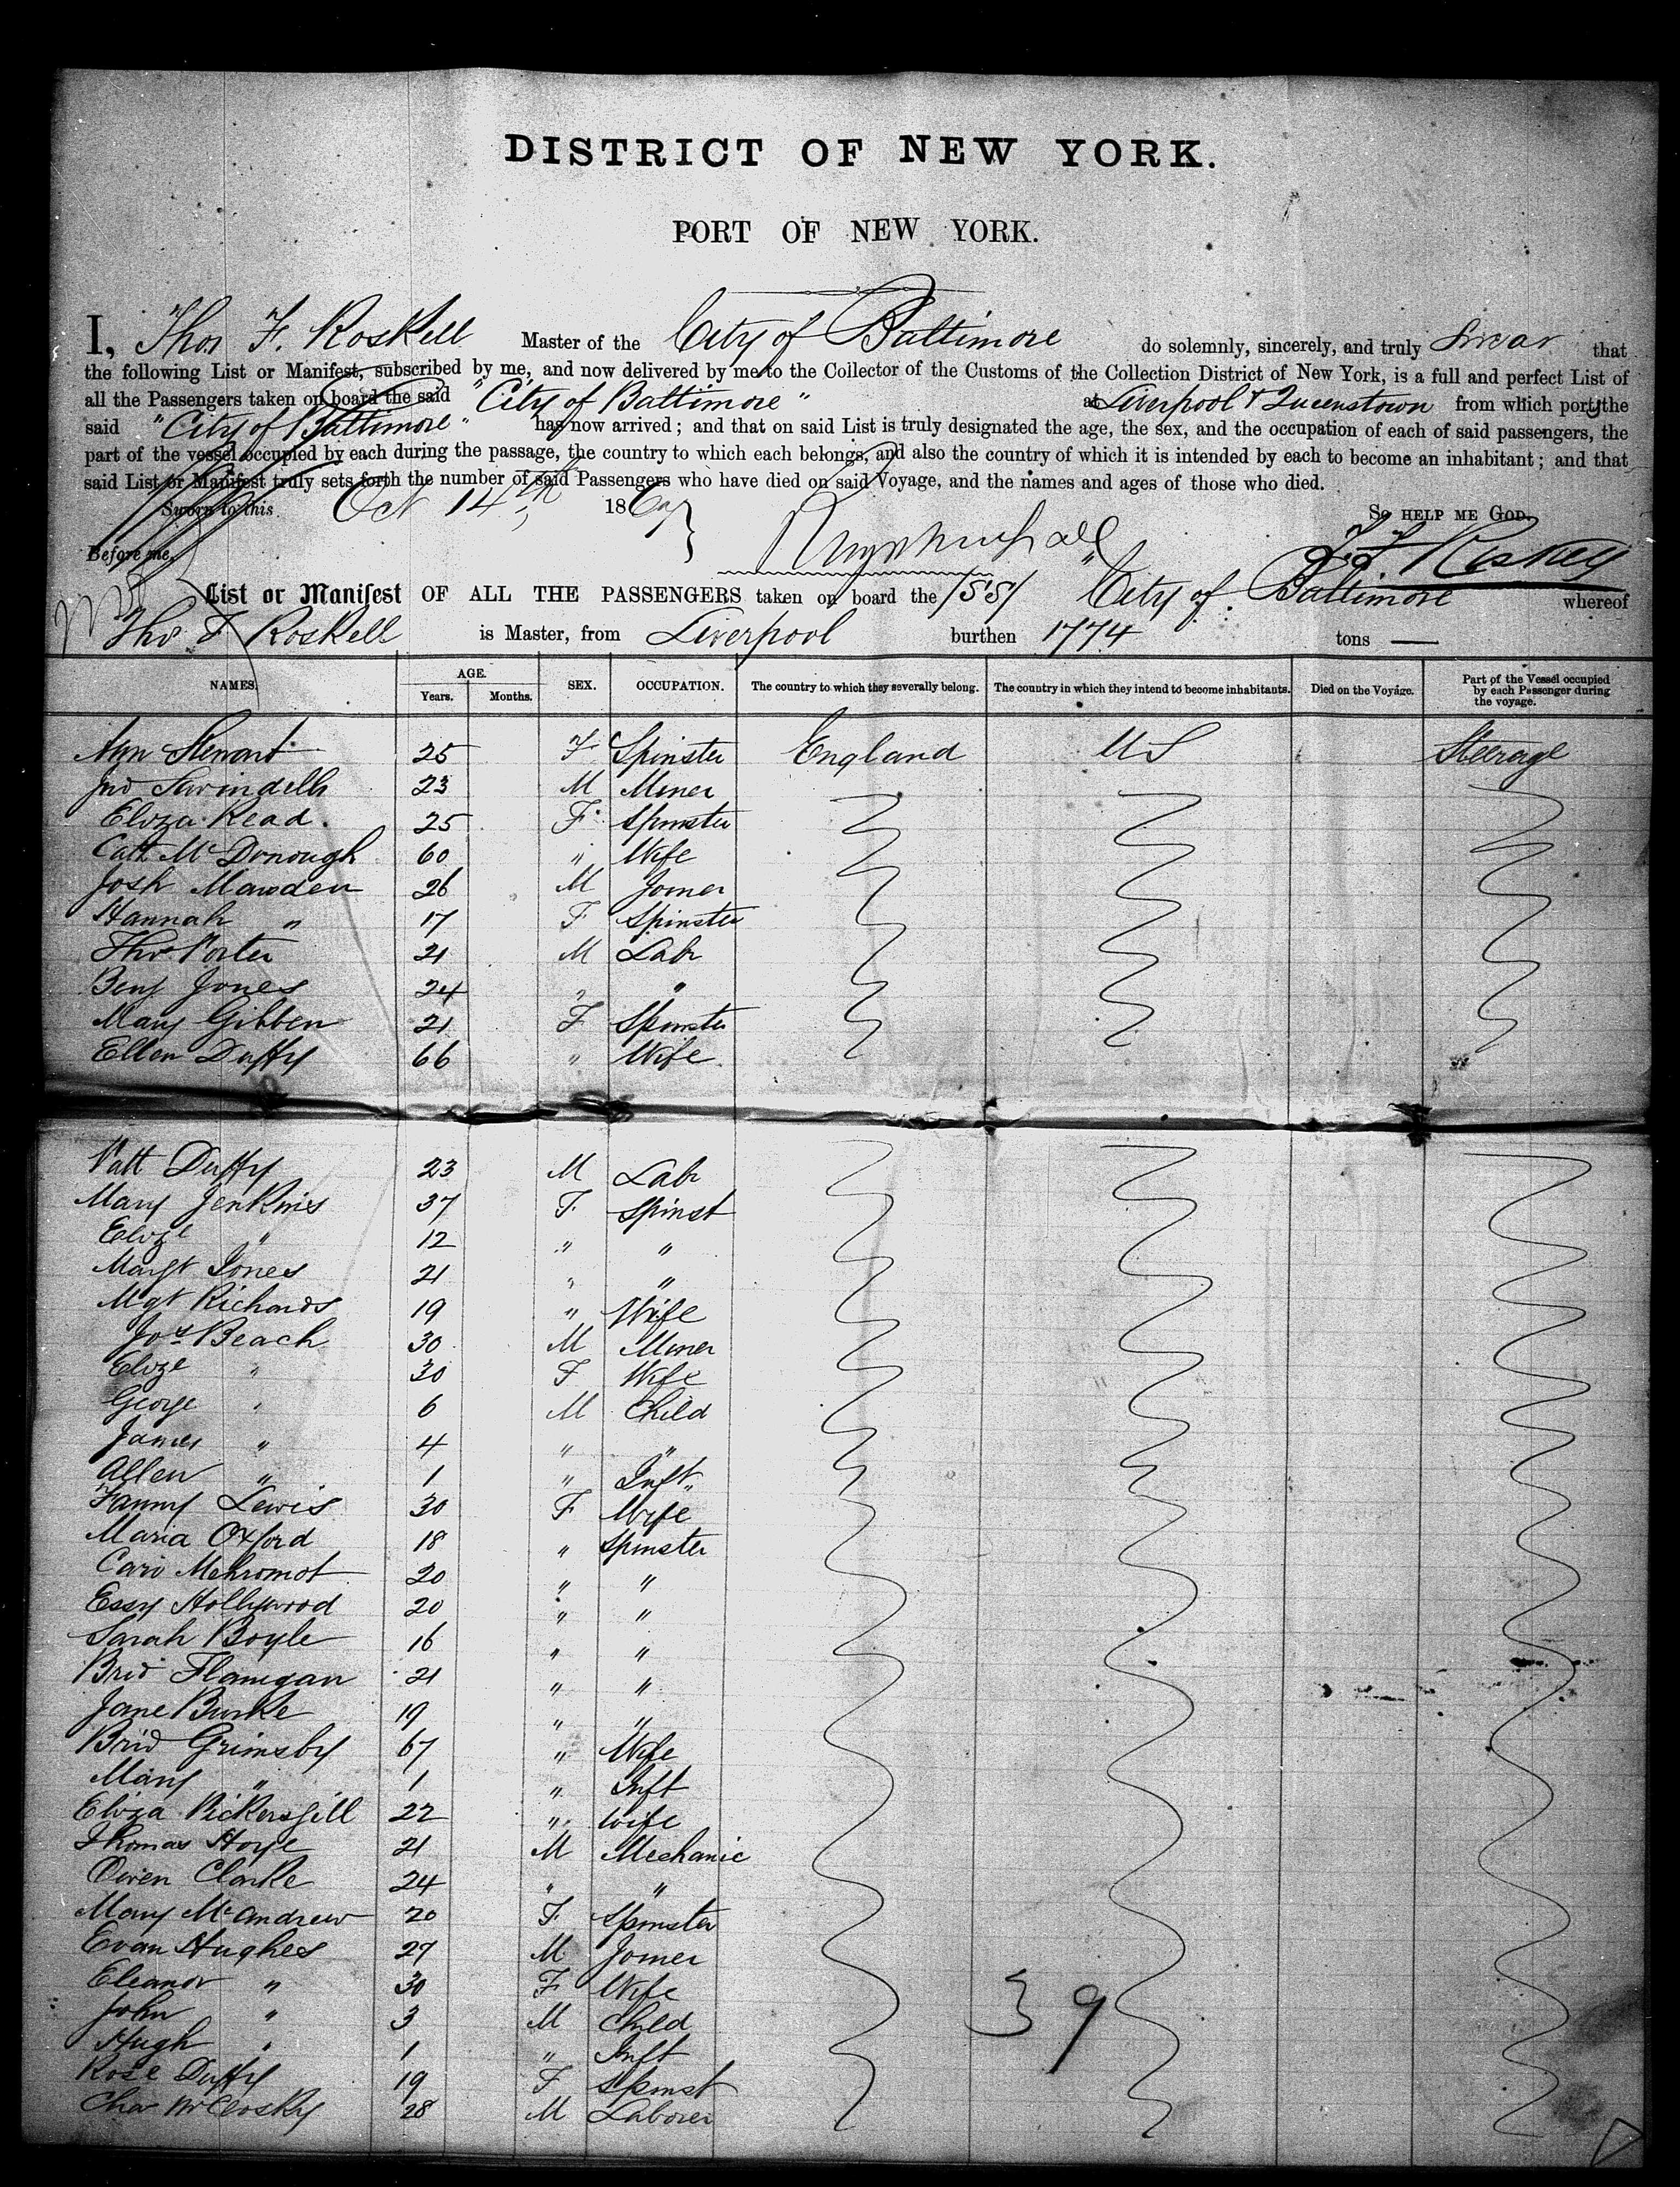 DISTRICT OF NEW YORK.
PORT OF NEW YORK.
I, Thos F. Roskell Master of the City of Baltimore do solemnly, sincerely, and truly swear that
the following List or Manifest, subscribed by me, and now delivered by me to the Collector of the Customs of the Collection District of New York, is a full and perfect List of
all the Passengers taken on board the said "City of Baltimore" at Liverpool & Queenstown from which port, the
said "City of Baltimore" has now arrived; and that on said List is truly designated the age, the sex, and the occupation of each of said passengers, the
part of the vessel occupied by each during the passage, the country to which each belongs, and also the country of which it is intended by each to become an inhabitant; and that
said List or Manifest truly sets forth the number of said Passengers who have died on said Voyage, and the names and ages of those who died.
Sworn to this Oct 14th, 1869 So HELP ME GOD.
Before me, T F Roskell
List or Manifest OF ALL THE PASSENGERS taken on board the /SS/ "City of Baltimore whereof
Thos F Roskell is Master, from Liverpool burthen 1774 tons —
NAMES. AGE. Years. Months. SEX. OCCUPATION. The country to which they severally belong. The country in which they intend to become inhabitants. Died on the Voyage. Part of the Vessel occupied by each Passenger during the voyage.
Ann Stewart 25 F Spinster England US Steerage
Jno Swindells 23 M Miner
Eliza Read 25 F Spinster
Cath McDonough 60 " Wife
Josh Mawden 26 M Joiner
Hannah " 17 F Spinster
Thos Porter 21 M Labr
Benj Jones 24 " "
Mary Gibben 21 F Spinster
Ellen Duffy 66 " Wife
Patt Duffy 23 M Labr
Mary Jenkins 37 F Spinst
Elize " 12 " "
Margt Jones 21 " "
Mgt Richards 19 " Wife
Jos Beach 30 M Miner
Elize " 30 F Wife
George " 6 M Child
James " 4 " "
Allen " 1 " Inft
Fanny Lewis 30 F Wife
Maria Oxford 18 " Spinster
20 " "
Essy Hollywood 20 " "
Sarah Boyle 16 " "
Brid Flanigan 21 " "
Jane Burke 19 " "
Brid Grimsby 67 " Wife
Mary " 1 " Inft
Eliza Pickersgill 22 " wife
Thomas Hoye 21 M Mechanic
Owen Clarke 24 " "
Mary McAndrew 20 F Spinster
Evan Hughes 27 M Joiner
Eleanor " 30 F Wife
John " 3 M Child
Hugh " 1 " Inft
Rose Duffy 19 F Spinst
Chas McClosky 28 M Laborer
39